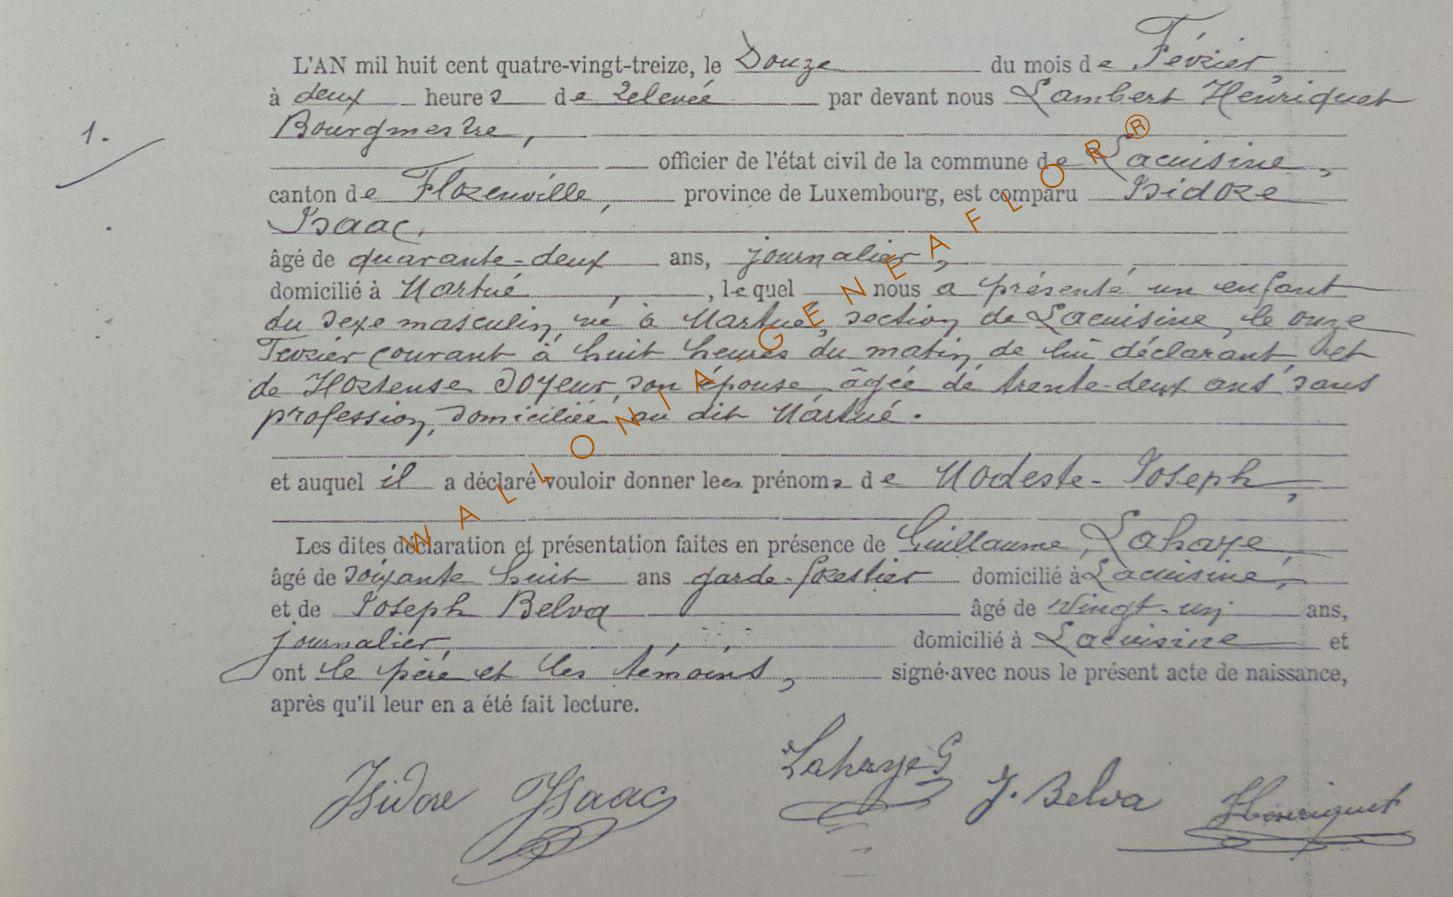 L'AN mil huit cent quatre-vingt-treize, le Douze du mois de Février
à deux heures de relevée par devant nous Lambert Henriquet
1. Bourgmestre,
officier de l'état civil de la commune de Lacuisine,
canton de Florenville, province de Luxembourg, est comparu Isidore
Isaac,
âgé de quarante-deux ans, journalier,
domicilié à Martué, lequel nous a présenté un enfant
du sexe masculin, né à Martué, section de Lacuisine, le onze
Février courant à huit heures du matin, de lui déclarant, et
de Hortense Doyeur, son épouse, âgée de trente-deux ans sans
profession, domiciliée au dit Martué.
et auquel il a déclaré vouloir donner les prénoms de Modeste-Joseph,
Les dites déclaration et présentation faites en présence de Guillaume Lahaye,
âgé de soixante huit ans garde-forestier domicilié à Lacuisine,
et de Joseph Belva âgé de vingt-un ans,
journalier, domicilié à Lacuisine et
ont le père et les témoins, signé avec nous le présent acte de naissance,
après qu'il leur en a été fait lecture.
Isidore Isaac Lahaye G J. Belva Henriquet
WALLONIA GENEAFLOR ®